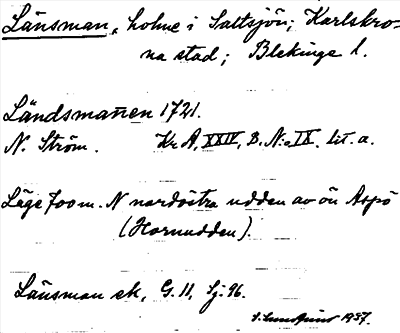 Länsman, holme i Saltsjön; Karlskro-
na stad; Blekinge l.
Ländsmañen 1721.
N. Ström. Kr. A. XXIV, B. N:o IX. lit. a.
Läge 700 m. N nordöstra udden av ön Aspö
(Hornudden).
Länsman ek, G. 11, Sj. 96.
1937.